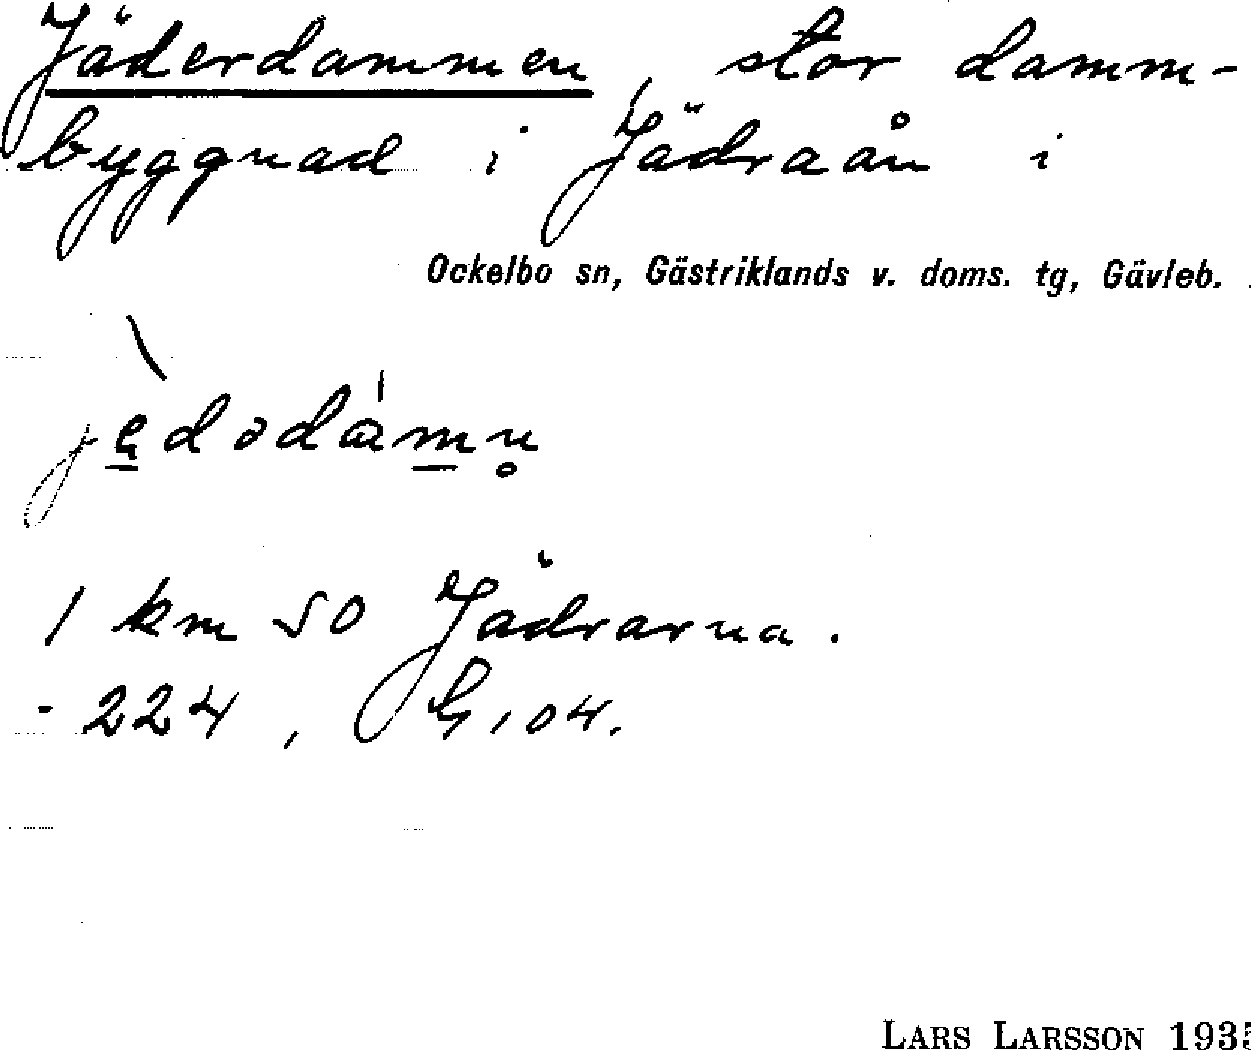 Jäderdammen, stor damm-
byggnad i Jädraån i
Ockelbo sn, Gästriklands v. doms. tg, Gävleb.
1 km SO Jädrarna.
- 224, G, 04.
LARS LARSSON 1935